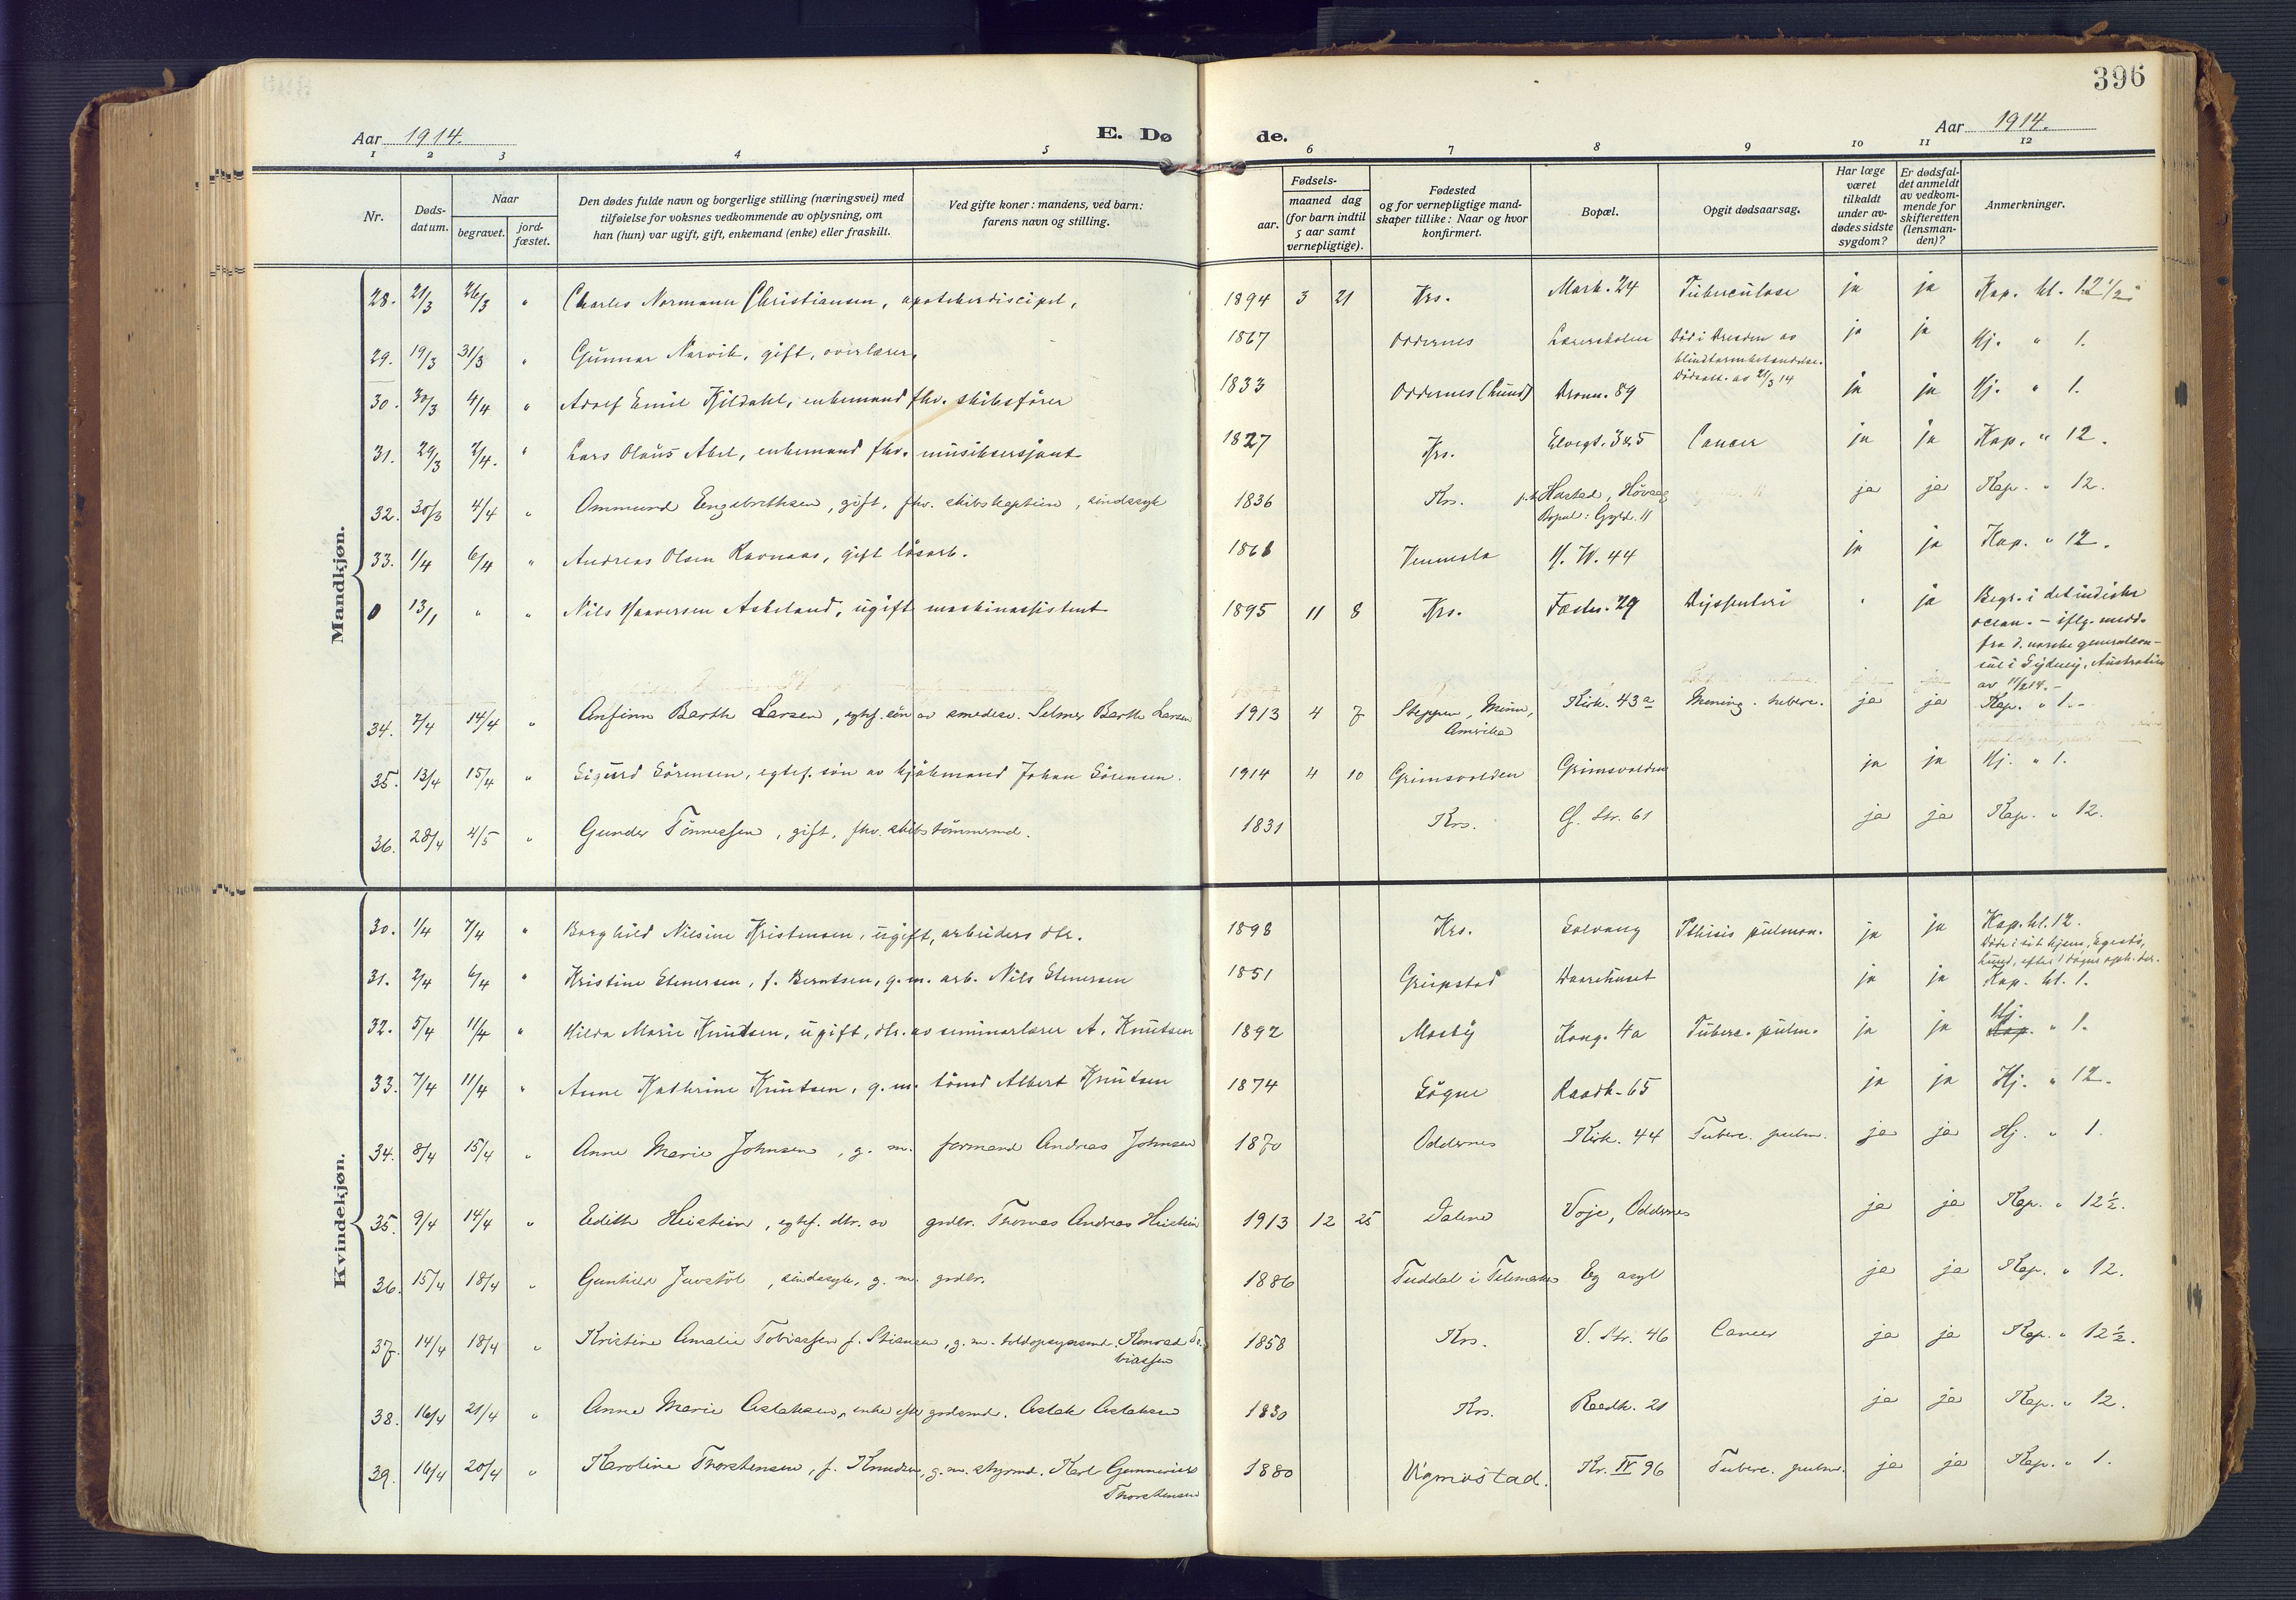 396
Aar 1914.
E. Dø de.
Aar 1914.
1 2 3 4 5 6 7 8 9 10 11 12
Nr.
Døds-
datum.
Naar
begravet.
jord-
fæstet.
Den dødes fulde navn og borgerlige stilling (næringsvei) med
tilføielse for voksnes vedkommende av oplysning, om
han (hun) var ugift, gift, enkemand (enke) eller fraskilt.
Ved gifte koner: mandens, ved barn:
farens navn og stilling.
Fødsels-
aar.
maaned dag
(for barn indtil
5 aar samt
vernepligtige).
Fødested
og for vernepligtige mand-
skaper tillike: Naar og hvor
konfirmert.
Bopæl.
Opgit dødsaarsag.
Har læge
været
tilkaldt
under av-
dødes sidste
sygdom?
Er dødsfal-
det anmeldt
av vedkom-
mende for
skifteretten
(lensman-
den)?
Anmerkninger.
Mandkjøn.
28. 21/3 26/3 " Charles Normann Christiansen, apothekerdiscipel, 1894 3 21 Krs. Mark. 24 Tuberculose ja ja Kap. kl. 12 1/2
29. 19/3 31/3 " Gunnar Narvik, gift, overlærer, 1867 Oddernes Lærerskolen Død i Dresden av ja ja Hj. " 1.
blindtarmbetændelse.
Dødsatt. av 21/3 14
30. 30/3 4/4 " Adolf Emil Kjildahl, enkemand fhv. skibsfører 1833 Oddernes (Lund) Dronn. 89 ja ja Hj. " 1.
31. 29/3 2/4. " Lars Olaus Abel, enkemand fhv. musiksersjant 1827 Krs. Elvegt. 345 Cancer ja ja Kap. " 12.
32. 30/3 4/4 " Ommund Engebrethsen, gift, fhv. skibskaptein, sindssyk 1836 Krs. Hastad, Høvaag ja ja Kap. " 12.
Bopæl: Gyld. 11
33. 1/4 6/4 " Andreas Olsen Ravnaas, gift løsarb. 1868 Vennesla H. W. 44 ja ja Kap. " 12.
0 13/1 " " Nils Haaversen Askeland, ugift maskinassistent 1895 11 8 Krs. Fæstn. 29 Dyssenteri " ja Begr. i det indiske
ocean. - iflg. medd.
fra d. norske generalkon-
sul i Sydney, Australien
av 11/2 14. -
34. 7/4 14/4 " Anfinn Barth Larsen, egtef. søn av smedesv. Selmer Barth Larsen 1913 4 7 Steppen, Minn, Kirk. 43a Mening. tuberc. ja ja Kap. " 1. -
Amerika
35. 13/4 15/4 " Sigurd Sörensen, egtef. søn av kjøbmand Johan Sörensen. 1914 4 10 Grimsvolden Grimsvolden ja ja Hj. " 1.
36. 28/4 4/5 " Gunder Tönnessen, gift, fhv. skibstömmermd. 1831 Krs. Gl. Str. 61 ja ja Kap. " 12.
Kvindekjøn.
30. 1/4 7/4 " Borghild Nilsine Kristensen, ugift, arbeiders dtr. 1898 Krs. Solvang Pthisis pulmon. ja ja Kap. kl. 12.
Døde i sit hjem, Egestø,
Lund, efter 1 døgns oph. der.
31. 2/4 6/4 " Kristine Stenersen, f. Berntsen, g. m. arb. Nils Stenersen 1851 Greipstad Daarehuset ja ja Kap. kl. 1.
32. 5/4 11/4 " Hilda Marie Knudsen, ugift, dtr. av seminarlærer A. Knutsen 1892 Mosby Kong. 4a Tuberc. pulm. ja ja Hj.
Kap. " 1.
33. 7/4 11/4 " Anne Kathrine Knutsen, g. m. tömd Albert Knutsen 1874 Søgne Raadh. 65 ja ja Hj. " 12.
34. 8/4 15/4 " Anne Marie Johnsen, g. m. formand Andreas Johnsen 1870 Oddernes Kirk. 44 Tuberc. pulm. ja ja Hj. " 1.
35. 9/4 14/4 " Edith Heistein, egtef. dtr. av grdbr. Thomas Andreas Heistein 1913 12 25 Dalene Voje, Oddernes ja ja Kap. " 12 1/2.
36. 15/4 18/4 " Gunhild Juvstöl, sindssyk, g. m. grdbr. 1886 Tuddal i Telemarken Eg asyl ja ja Kap. " 12.
37. 14/4 18/4 " Kristine Amalie Tobiassen f. Stiansen, g. m. toldopsynsmd. Konrad To-
biassen 1858 Krs. V. Str. 46 Cancer ja ja Kap. " 12 1/2.
38. 16/4 21/4 " Anne Marie Aslaksen, enke efter grdsmd. Aslak Aslaksen 1830 Krs. Raadh. 21 ja ja Kap. " 12.
39. 16/4 20/4 " Karoline Thorstensen, f. Knudsen, g. m. styrmd. Karl Gunnerius
Thorstensen 1880 Vigmostad. Kr. IV 96 Tuberc. pulm. ja ja Kap. " 1.